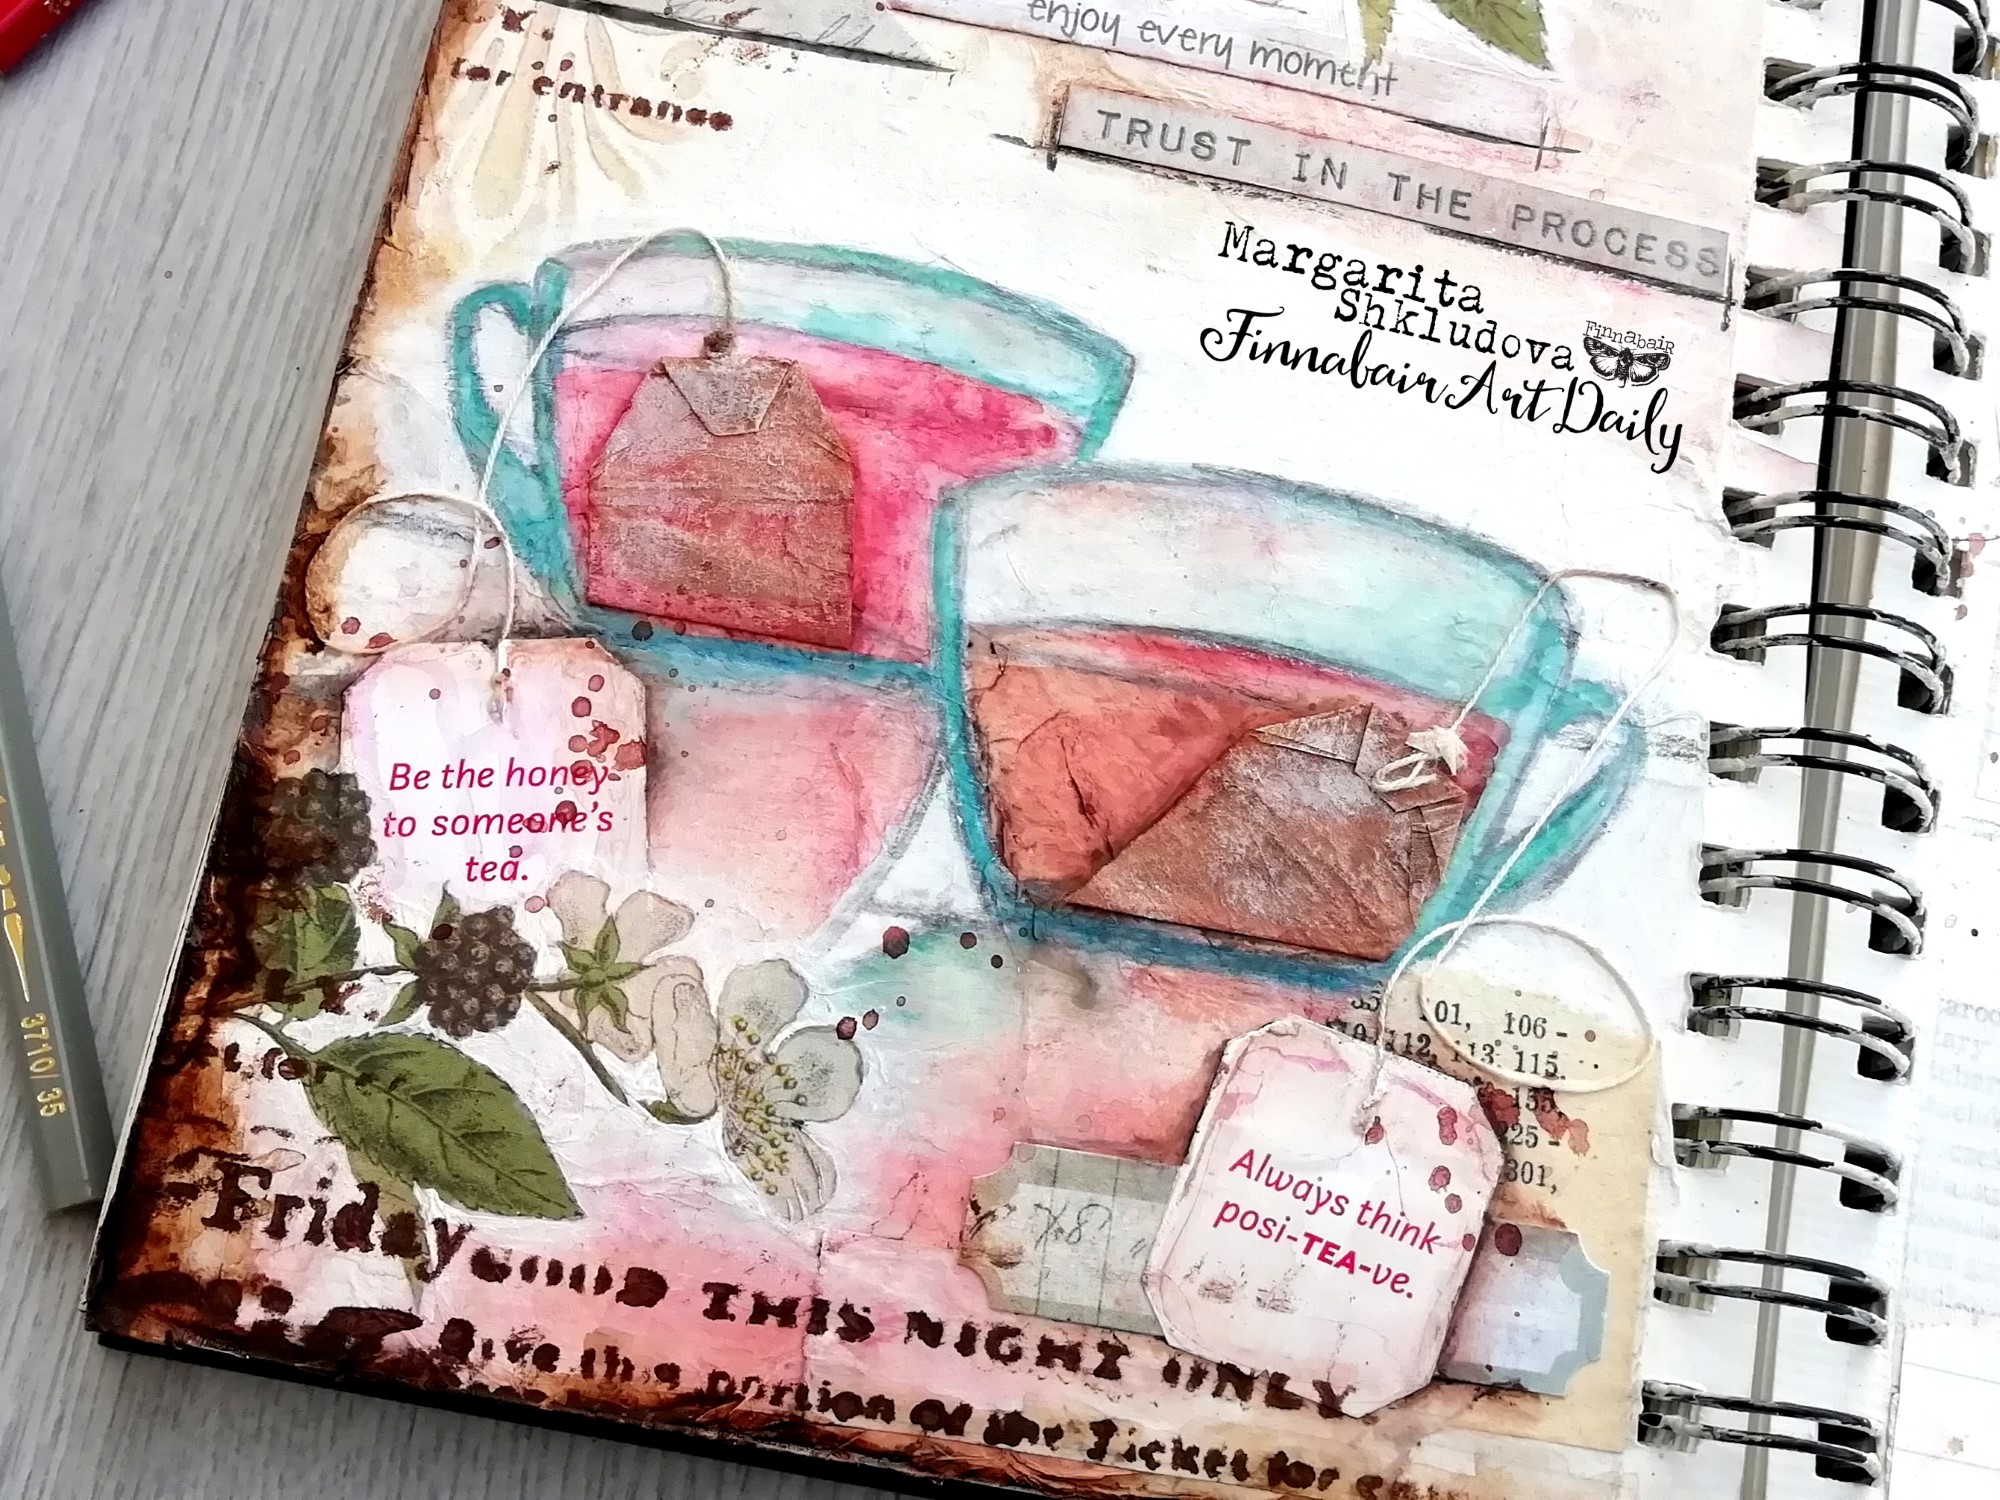 enjoy every moment
for entrance
TRUST IN THE PROCESS
Margarita
Shkludova
FinnabaiR
Finnabair Art Daily
Be the honey
to someone's
tea.
101, 106-
112, 113 115.
155,
225-
301,
Always think
posi-TEA-ve.
Friday GOOD THIS NIGHT ONLY
Give this portion Of the Ticket for
3710/35